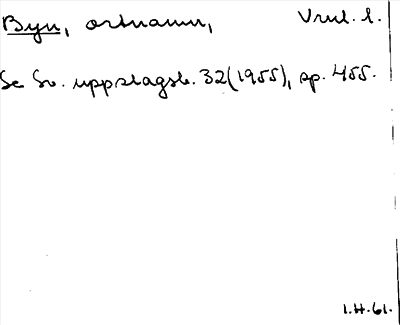 Byn, ortnamn, Vrml. l.
Se Sv. uppslagsb. 32(1955), sp. 455.
1.H.61.